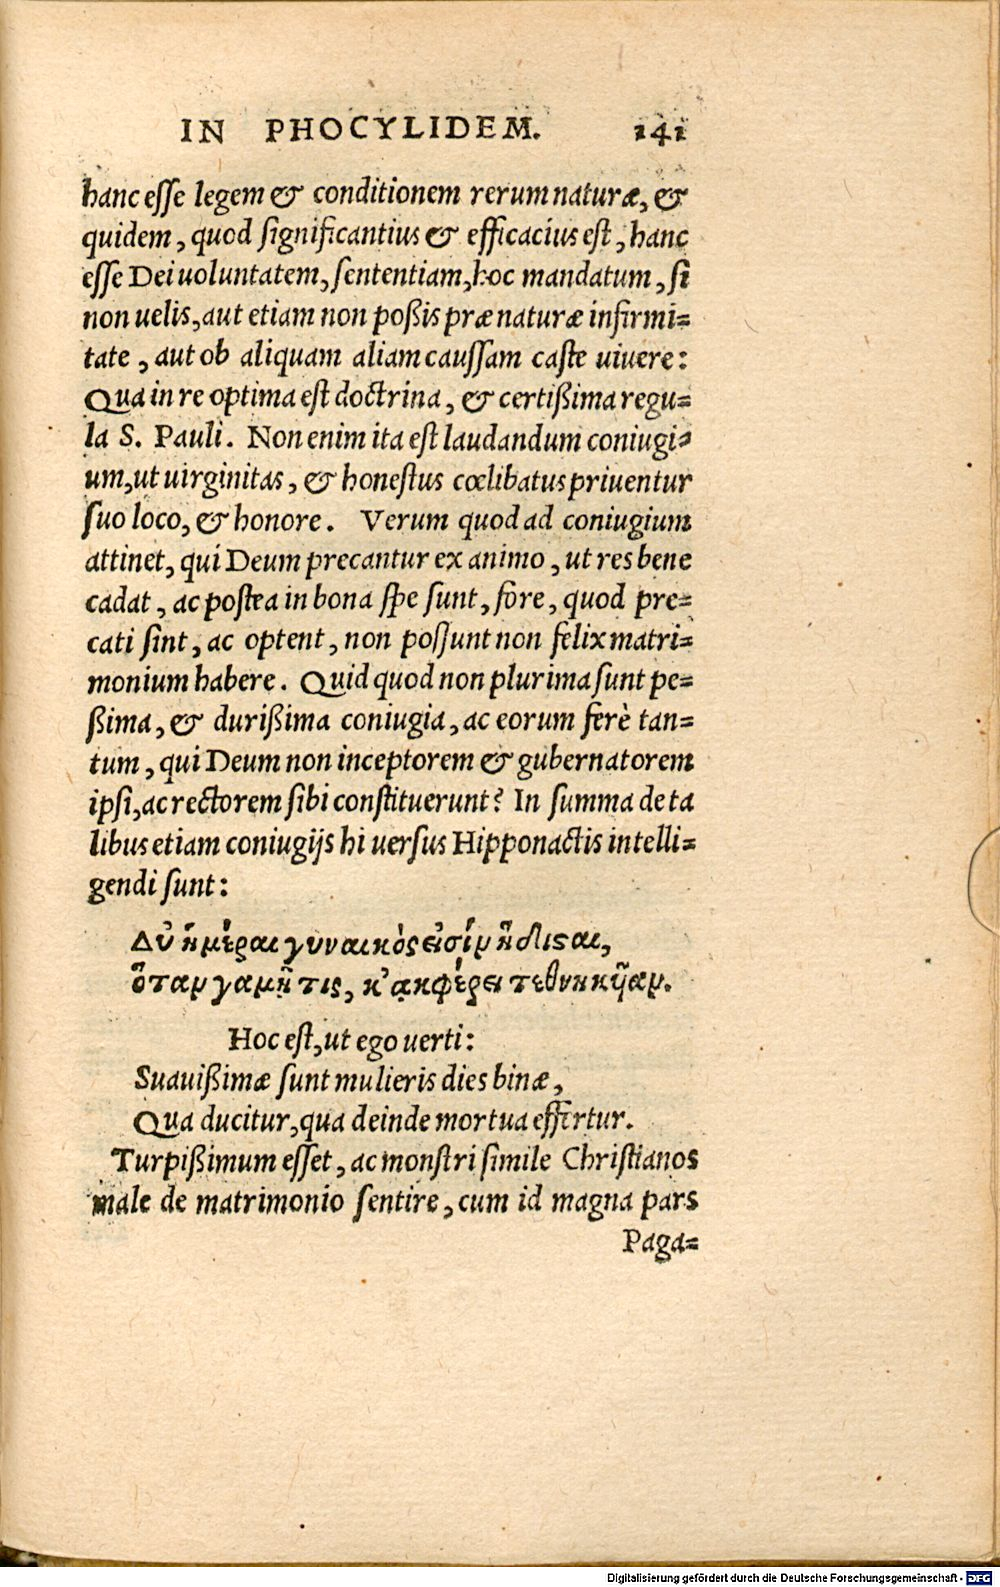 IN PHOCYLIDEM. 141
hanc esse legem & conditionem rerum naturæ, &
quidem, quod significantius & efficacius est, hanc
esse Dei uoluntatem, sententiam, hoc mandatum, si
non uelis, aut etiam non poßis præ naturæ infirmi=
tate, aut ob aliquam aliam caussam caste uiuere:
Qua in re optima est doctrina, & certißima regu=
la S. Pauli. Non enim ita est laudandum coniugi=
um, ut uirginitas, & honestus cœlibatus priuentur
suo loco, & honore. Verum quod ad coniugium
attinet, qui Deum precantur ex animo, ut res bene
cadat, ac postea in bona spe sunt, fore, quod pre=
cati sint, ac optent, non possunt non felix matri=
monium habere. Quid quod non plurima sunt pe=
ßima, & durißima coniugia, ac eorum ferè tan=
tum, qui Deum non inceptorem & gubernatorem
ipsi, ac rectorem sibi constituerunt? In summa de ta
libus etiam coniugijs hi uersus Hipponactis intelli=
gendi sunt:
Δύ ἡμέραι γυναικὸς εἰσίν ἥδισαι,
ὅταν γαμῇ τις, κ' ἀκφέρει τεθνηκῦαν.
Hoc est, ut ego uerti:
Suauißimæ sunt mulieris dies binæ,
Qua ducitur, qua deinde mortua effertur.
Turpißimum esset, ac monstri simile Christianos
male de matrimonio sentire, cum id magna pars
Paga=
Digitalisierung gefördert durch die Deutsche Forschungsgemeinschaft - DFG